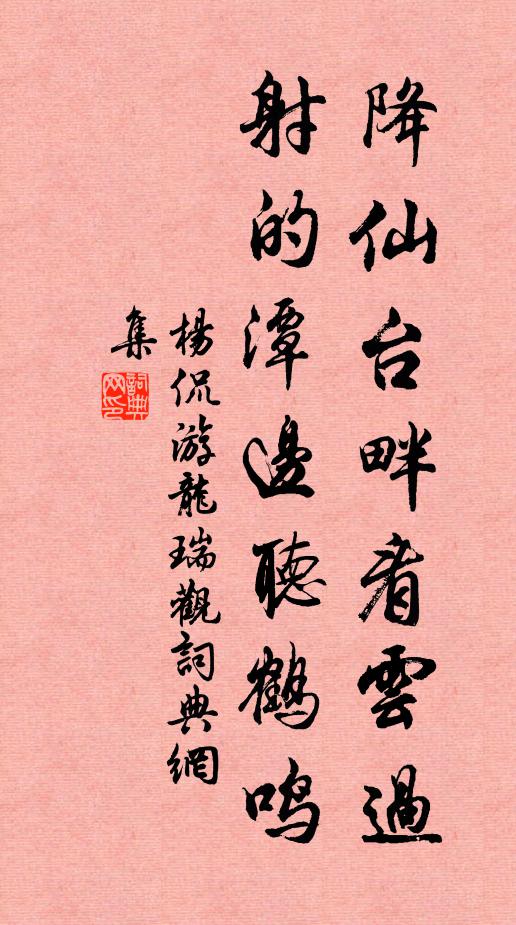 降仙台畔看雲過
射的潭邊聽鶴鸣
楊侃游龍瑞觀詞典網
集
詞典网印